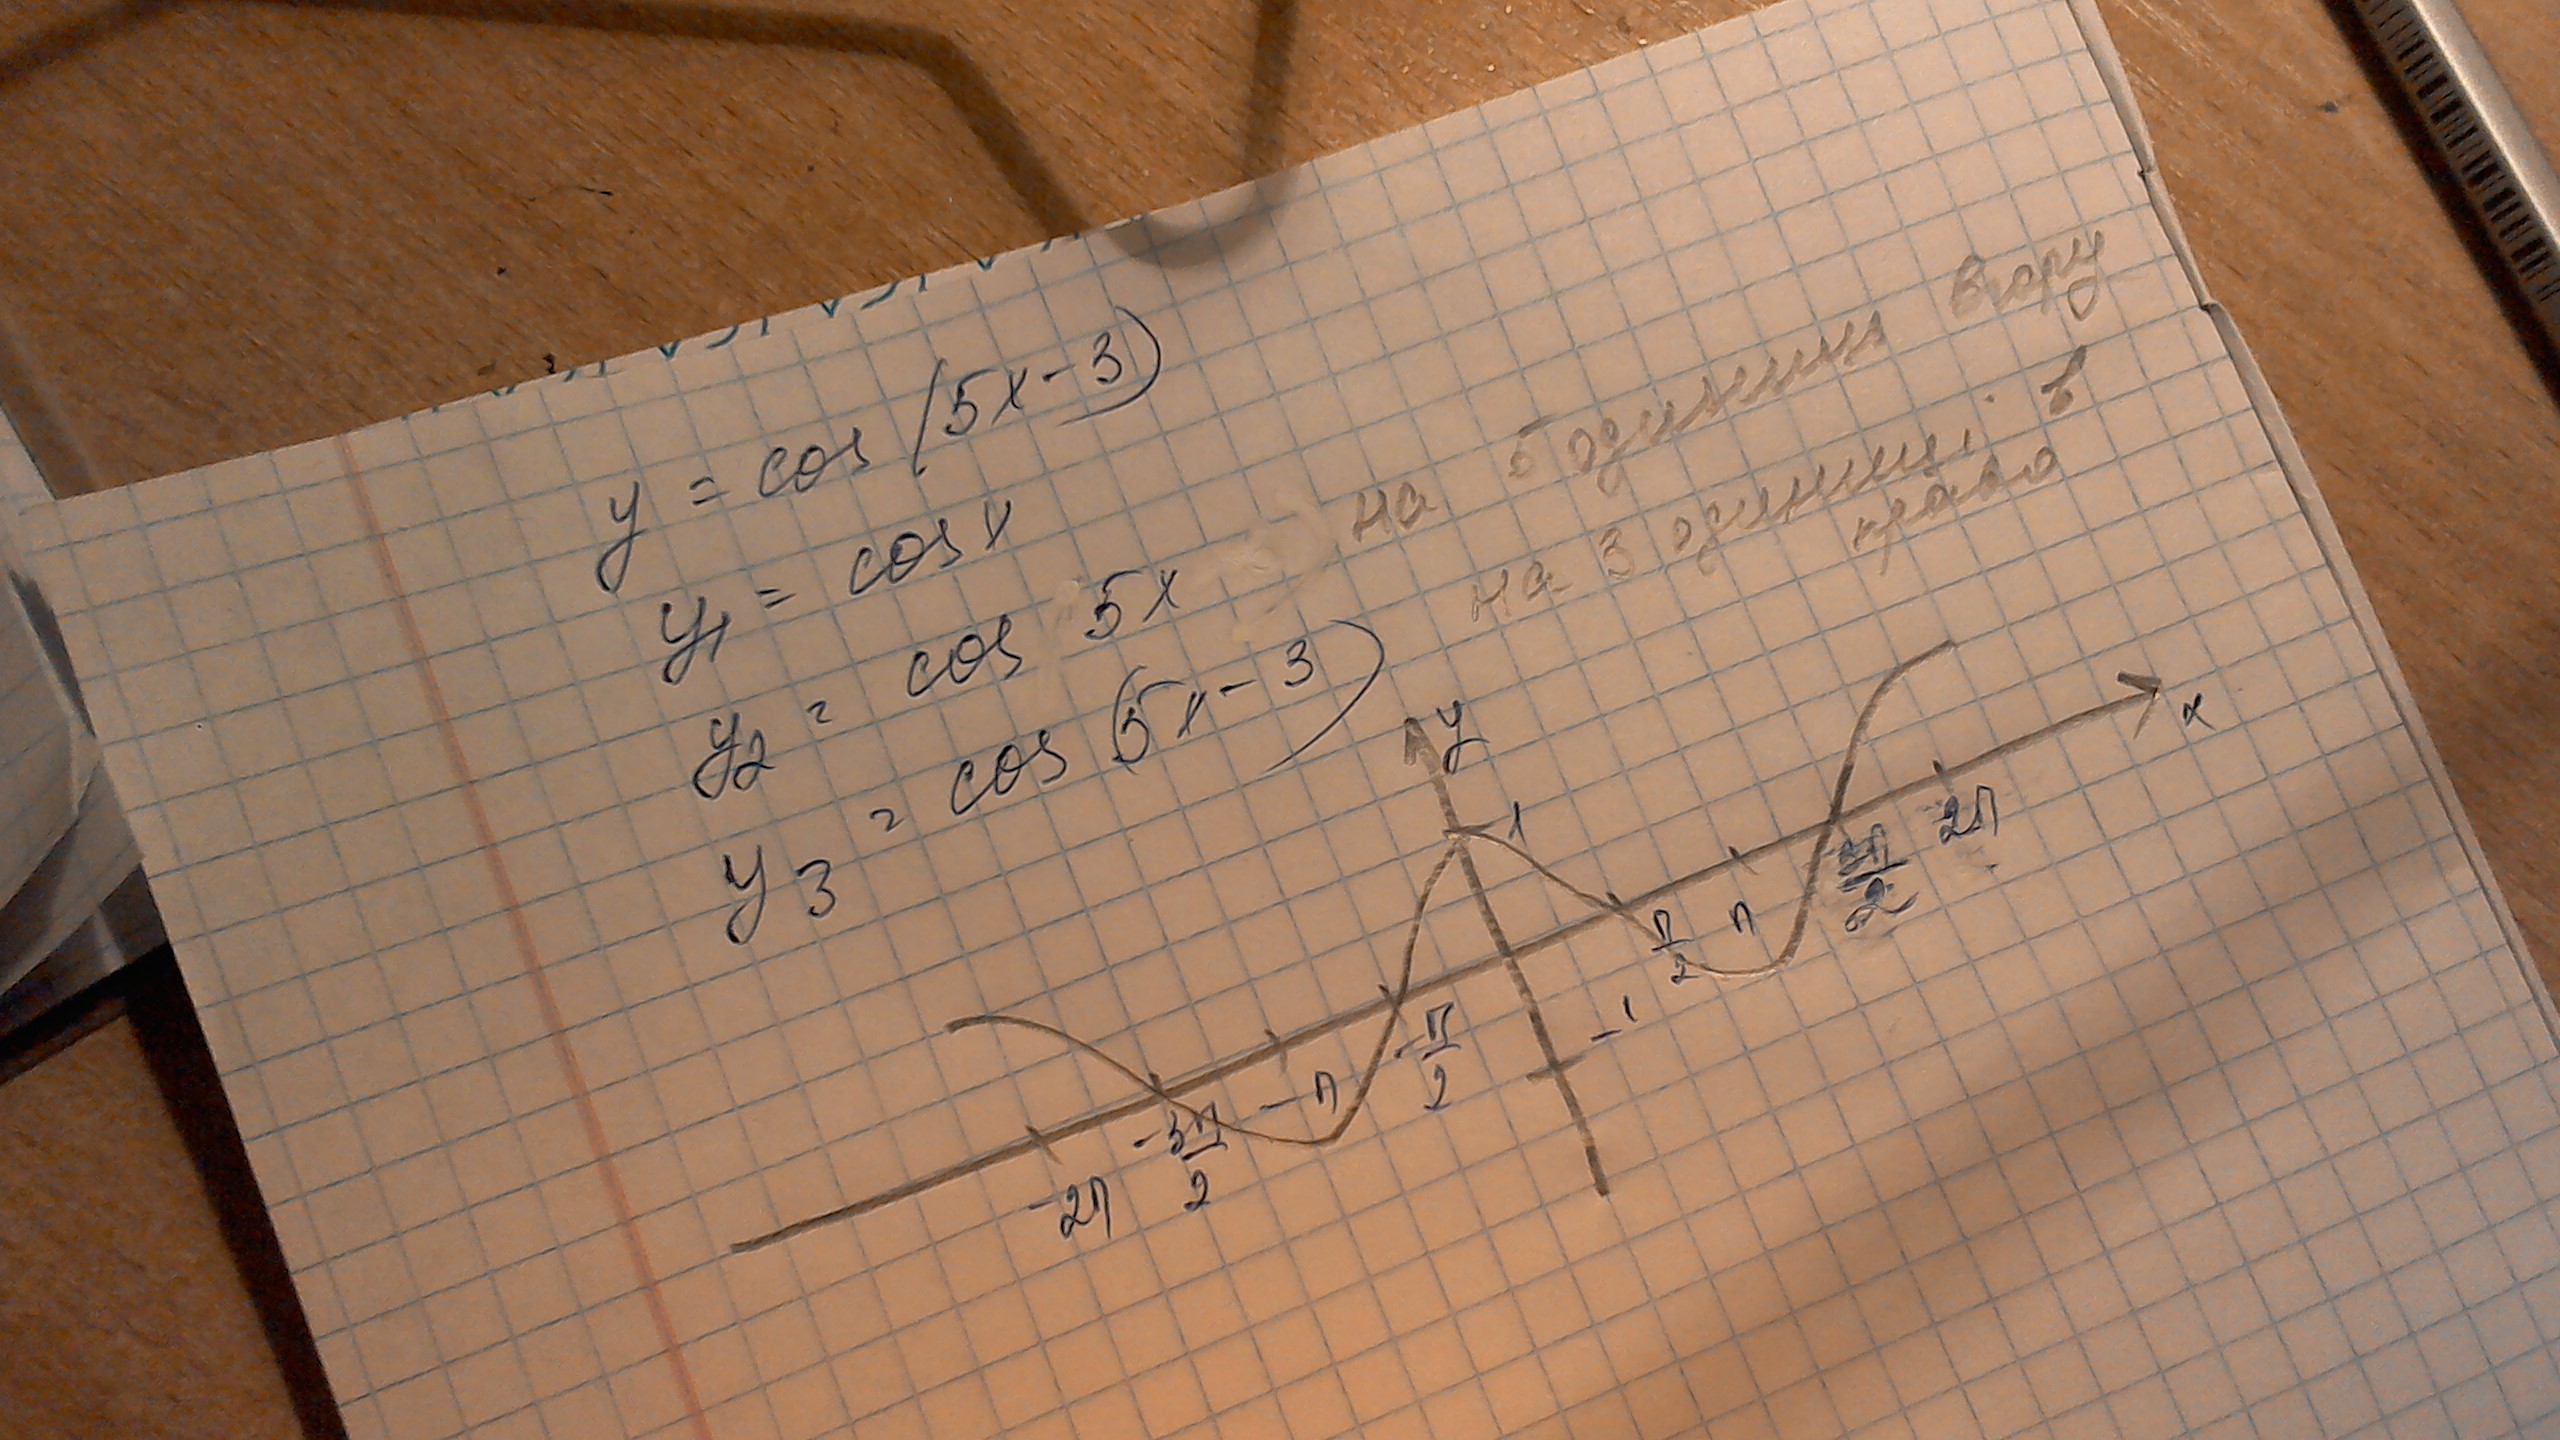 y = cos (5x-3)
y1 = cos x
y2 = cos 5x на 5 одиниць вгору
y3 = cos (5x-3) на 3 одиниці в
право
y
x
1
-1
-2π
-3π/2
-π
-π/2
π/2
π
3π/2
2π